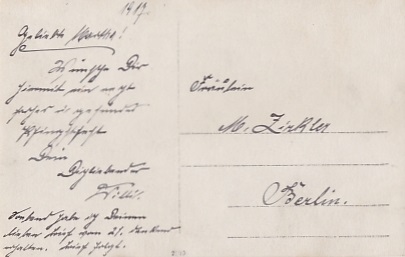 1917.
Geliebte Martha!
Wünsche Dir
hiermit ein recht
frohes u. gesundes
Pfingstfest
Dein
Dichliebender
Willi.
Soeben habe ich Deinen
lieben Brief vom 21. dankend
erhalten. Brief folgt.
Fräulein
M. Zirkler
Berlin.